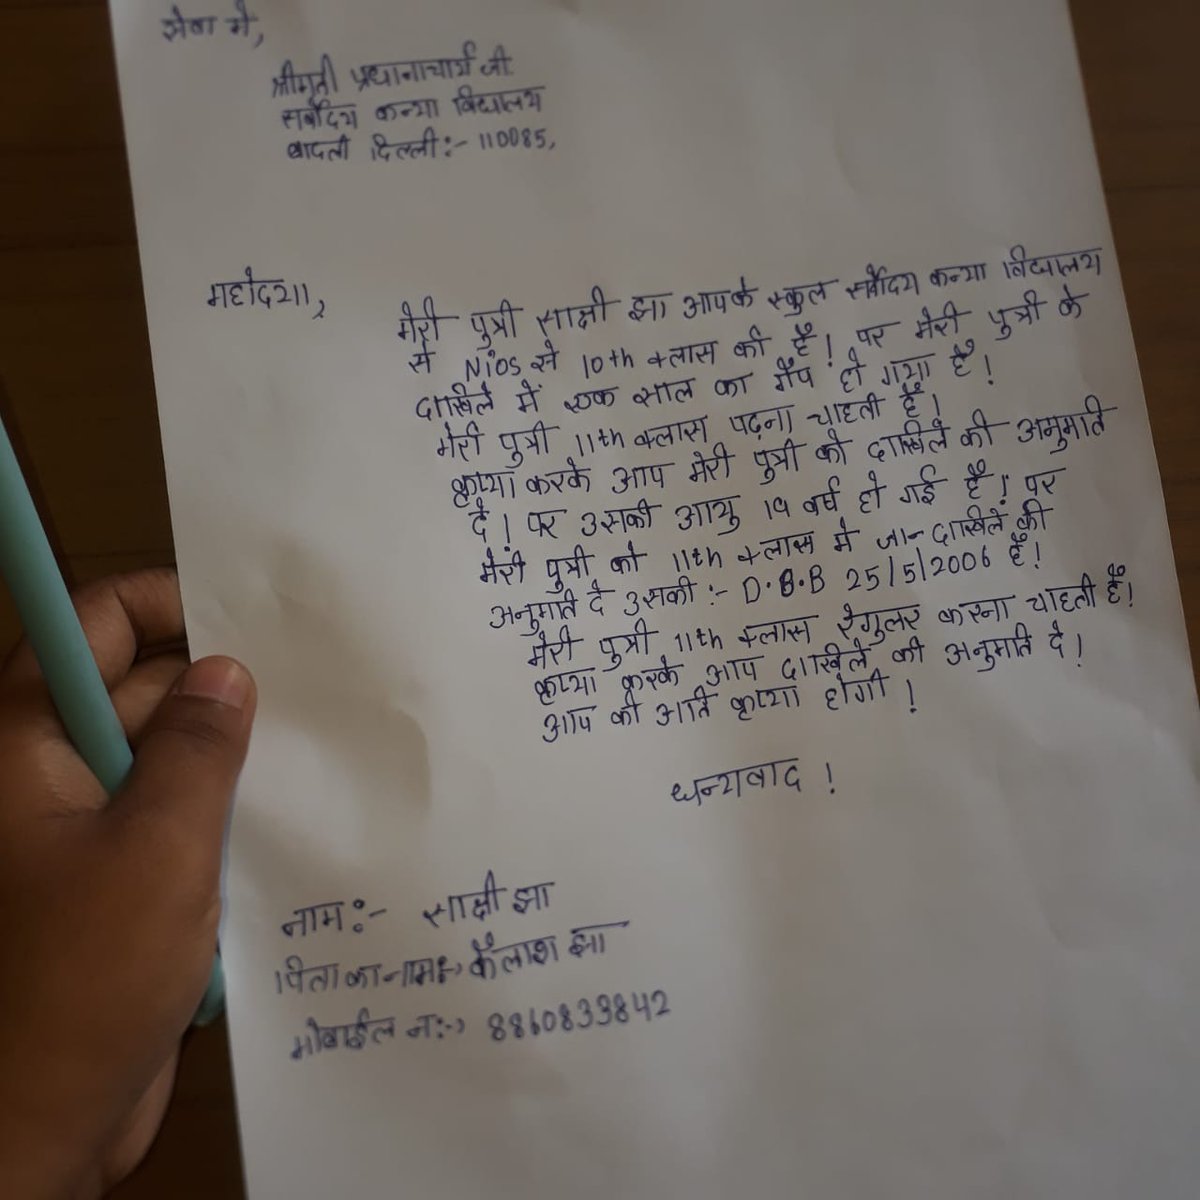 सेवा मे,
श्रीमती प्रधानाचार्य जी
सर्वोदय कन्या विद्यालय
बादली दिल्ली:- 110085,
महोदया,
मेरी पुत्री साक्षी झा आपके स्कुल सर्वोदय कन्या विद्यालय
से Nios से 10th क्लास की हैं! पर मेरी पुत्री के
दाखिले में एक साल का गैप हो गया हैं!
मेरी पुत्री 11th क्लास पढ़ना चाहती हैं।
कृप्या करके आप मेरी पुत्री को दाखिले की अनुमति
दे! पर उसकी आयु 19 वर्ष हो गई हैं! पर
मेरी पुत्री को 11th क्लास मे दाखिले की
अनुमति दे उसकी:- D.B.B 25/5/2006 हैं!
मेरी पुत्री 11th क्लास रेगुलर करना चाहती हैं!
कृप्या करके आप दाखिले की अनुमति दे!
आप की अति कृप्या होगी!
धन्यवाद!
नाम:- साक्षी झा
पिता का नाम:- कैलाश झा
मोबाईल न:- 8860833842